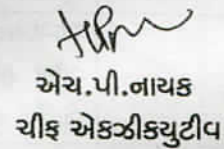 એચ.પી.નાયક
ચીફ એકઝીકયુટીવ